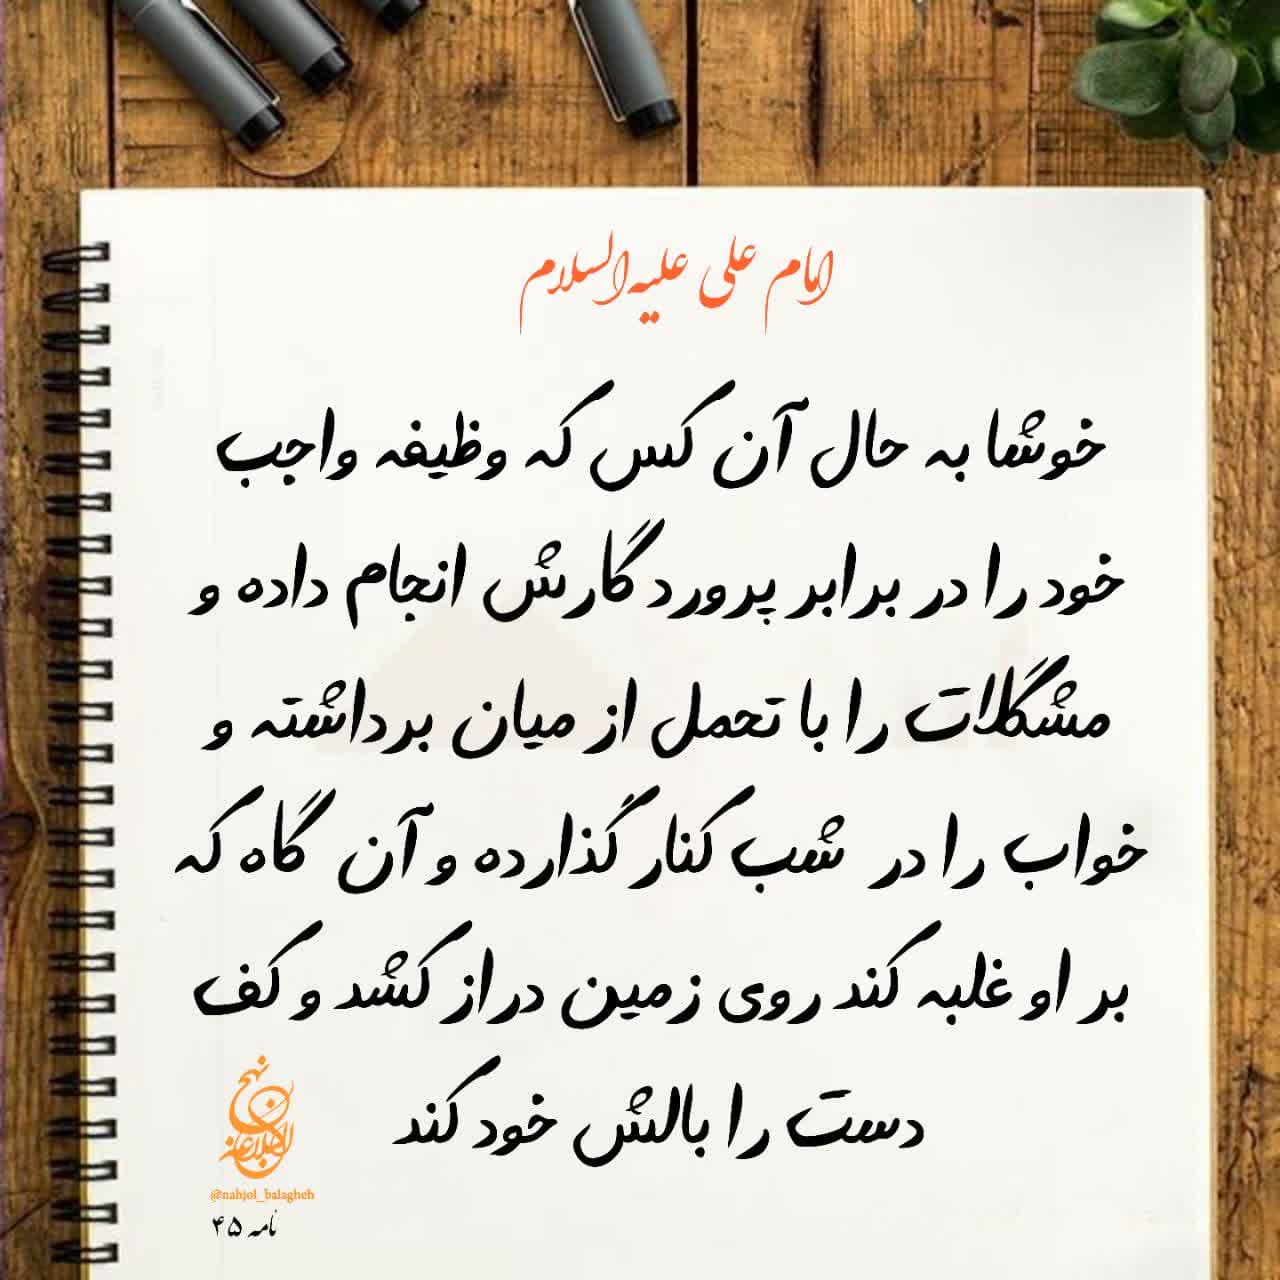 امام علی علیه‌السلام
خوشا به حال آن کس که وظیفه واجب
خود را در برابر پروردگارش انجام داده و
مشگلات را با تحمل از میان برداشته و
خواب را در شب کنار گذارده و آن گاه که
بر او غلبه کند روی زمین دراز کشد و کف
دست را بالش خود کند
نهج البلاغه
@nahjol_balagheh
نامه ۴۵